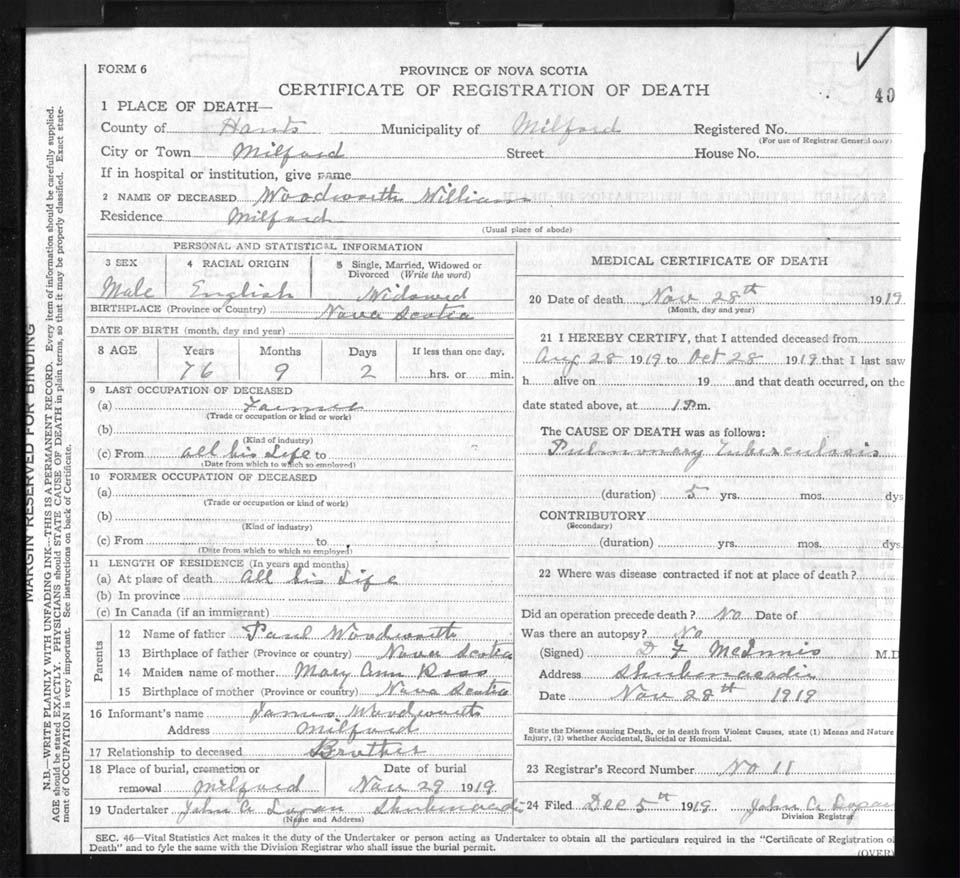 FORM 6
PROVINCE OF NOVA SCOTIA
CERTIFICATE OF REGISTRATION OF DEATH
40
1 PLACE OF DEATH—
County of Hants Municipality of Milford Registered No.
(For use of Registrar General only)
City or Town Milford Street House No.
If in hospital or institution, give name
2 NAME OF DECEASED Woodworth William
Residence Milford
(Usual place of abode)
PERSONAL AND STATISTICAL INFORMATION
3 SEX 4 RACIAL ORIGIN 5 Single, Married, Widowed or
Divorced (Write the word)
Male English Widowed
BIRTHPLACE (Province or Country) Nova Scotia
DATE OF BIRTH (month, day and year)
8 AGE Years Months Days If less than one day,
76 9 2 hrs. or min.
9 LAST OCCUPATION OF DECEASED
(a) Farmer
(Trade or occupation or kind or work)
(b)
(Kind of industry)
(c) From all his Life to
(Date from which to which so employed)
10 FORMER OCCUPATION OF DECEASED
(a)
(Trade or occupation or kind of work)
(b)
(Kind of industry)
(c) From to
(Date from which to which so employed)
11 LENGTH OF RESIDENCE (In years and months)
(a) At place of death all his Life
(b) In province
(c) In Canada (if an immigrant)
Parents
12 Name of father Paul Woodworth
13 Birthplace of father (Province or country) Nova Scotia
14 Maiden name of mother Mary Ann Ross
15 Birthplace of mother (Province or country) Nova Scotia
16 Informant's name James Woodworth
Address Milford
17 Relationship to deceased Brother
18 Place of burial, cremation or Date of burial
removal Milford Nov 29 1919
19 Undertaker John A Logan Shubenacadie
(Name and Address)
MEDICAL CERTIFICATE OF DEATH
20 Date of death Nov 28th 1919
(Month, day and year)
21 I HEREBY CERTIFY, that I attended deceased from
Aug 28 1919 to Oct 28 1919 that I last saw
h alive on 19 and that death occurred, on the
date stated above, at 1 P.m.
The CAUSE OF DEATH was as follows:
Pulmonary Tuberculosis
(duration) 5 yrs. mos. dys
CONTRIBUTORY
(Secondary)
(duration) yrs. mos. dys.
22 Where was disease contracted if not at place of death?
Did an operation precede death? No Date of
Was there an autopsy? No
(Signed) D F McInnis M.D
Address Shubenacadie
Date Nov 28th 1919
State the Disease causing Death, or in death from Violent Causes, state (1) Means and Nature
Injury, (2) whether Accidental, Suicidal or Homicidal.
23 Registrar's Record Number No 11
24 Filed Dec 5th 1919 John A Logan
Division Registrar
SEC. 46—Vital Statistics Act makes it the duty of the Undertaker or person acting as Undertaker to obtain all the particulars required in the "Certificate of Registration of
Death" and to fyle the same with the Division Registrar who shall issue the burial permit.
(OVER)
MARGIN RESERVED FOR BINDING
N.B.—WRITE PLAINLY WITH UNFADING INK—THIS IS A PERMANENT RECORD. Every item of information should be carefully supplied.
AGE should be stated EXACTLY. PHYSICIANS should STATE CAUSE OF DEATH in plain terms, so that it may be properly classified. Exact state-
ment of OCCUPATION is very important. See instructions on back of Certificate.